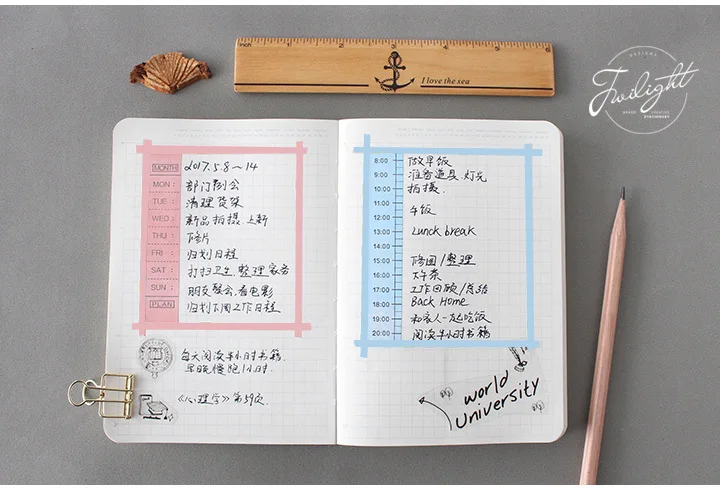 inch 1 2 3 4 5
I love the sea
DESIGNS
Twilight
BRAND CREATIVE
STATIONERY
MONTH 2017.5.8～14
MON: 部门例会
TUE: 清理货架
WED: 新品拍摄.上新
THU: 修片
FRI: 归划日程
SAT: 打扫卫生.整理家务
SUN: 朋友聚会,看电影
PLAN 归划下周工作日程
每天阅读半小时书籍.
早晚慢跑1小时.
《心理学》第59页.
8:00 做早饭
9:00 准备道具.灯光
10:00 拍摄.
11:00
12:00 午饭
13:00 Lunck break
14:00
15:00 修图/整理
16:00 下午茶
17:00 工作回顾/总结
18:00 Back Home
19:00 和家人一起吃饭
20:00 阅读半小时书籍
world
University